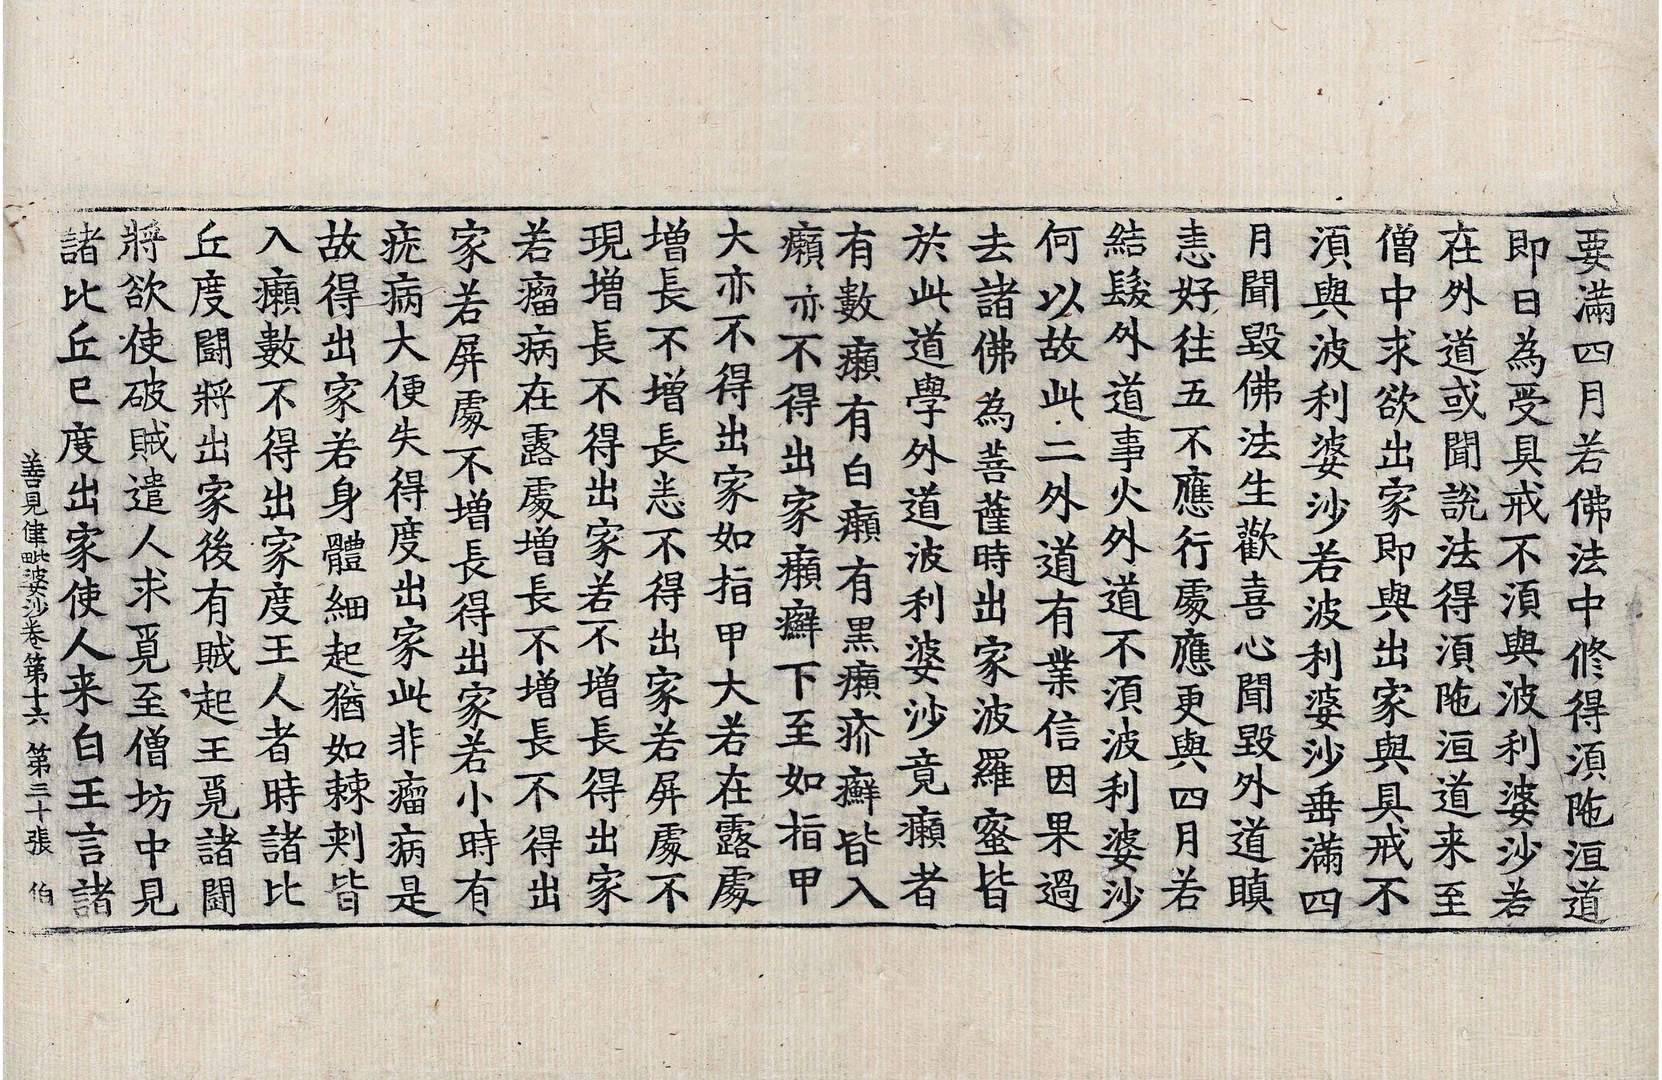 要滿四月若佛法中修得湏陁洹道
即日為受具戒不湏與波利婆沙若
在外道或聞說法得湏陁洹道来至
僧中求欲出家即與出家與具戒不
湏與波利婆沙若波利婆沙垂滿四
月聞毀佛法生歡喜心聞毀外道瞋
恚好往五不應行處應更與四月若
結髮外道事火外道不湏波利婆沙
何以故此二外道有業信因果過
去諸佛為菩薩時出家波羅蜜皆
於此道學外道波利婆沙竟癩者
有數癩有白癩有黒癩疥癬皆入
癩亦不得出家癩癬下至如指甲
大亦不得出家如指甲大若在露處
增長不增長恚不得出家若屏處不
現增長不得出家若不增長得出家
若瘤病在露處增長不增長不得出
家若屏處不增長得出家若小時有
疣病大便失得度出家此非瘤病是
故得出家若身體細起猶如棘刾皆
入癩數不得出家度王人者時諸比
丘度鬪將出家後有賊起王覓諸鬪
將欲使破賊遣人求覓至僧坊中見
諸比丘已度出家使人来白王言諸
善見律毗婆沙卷第十六 第三十張 伯